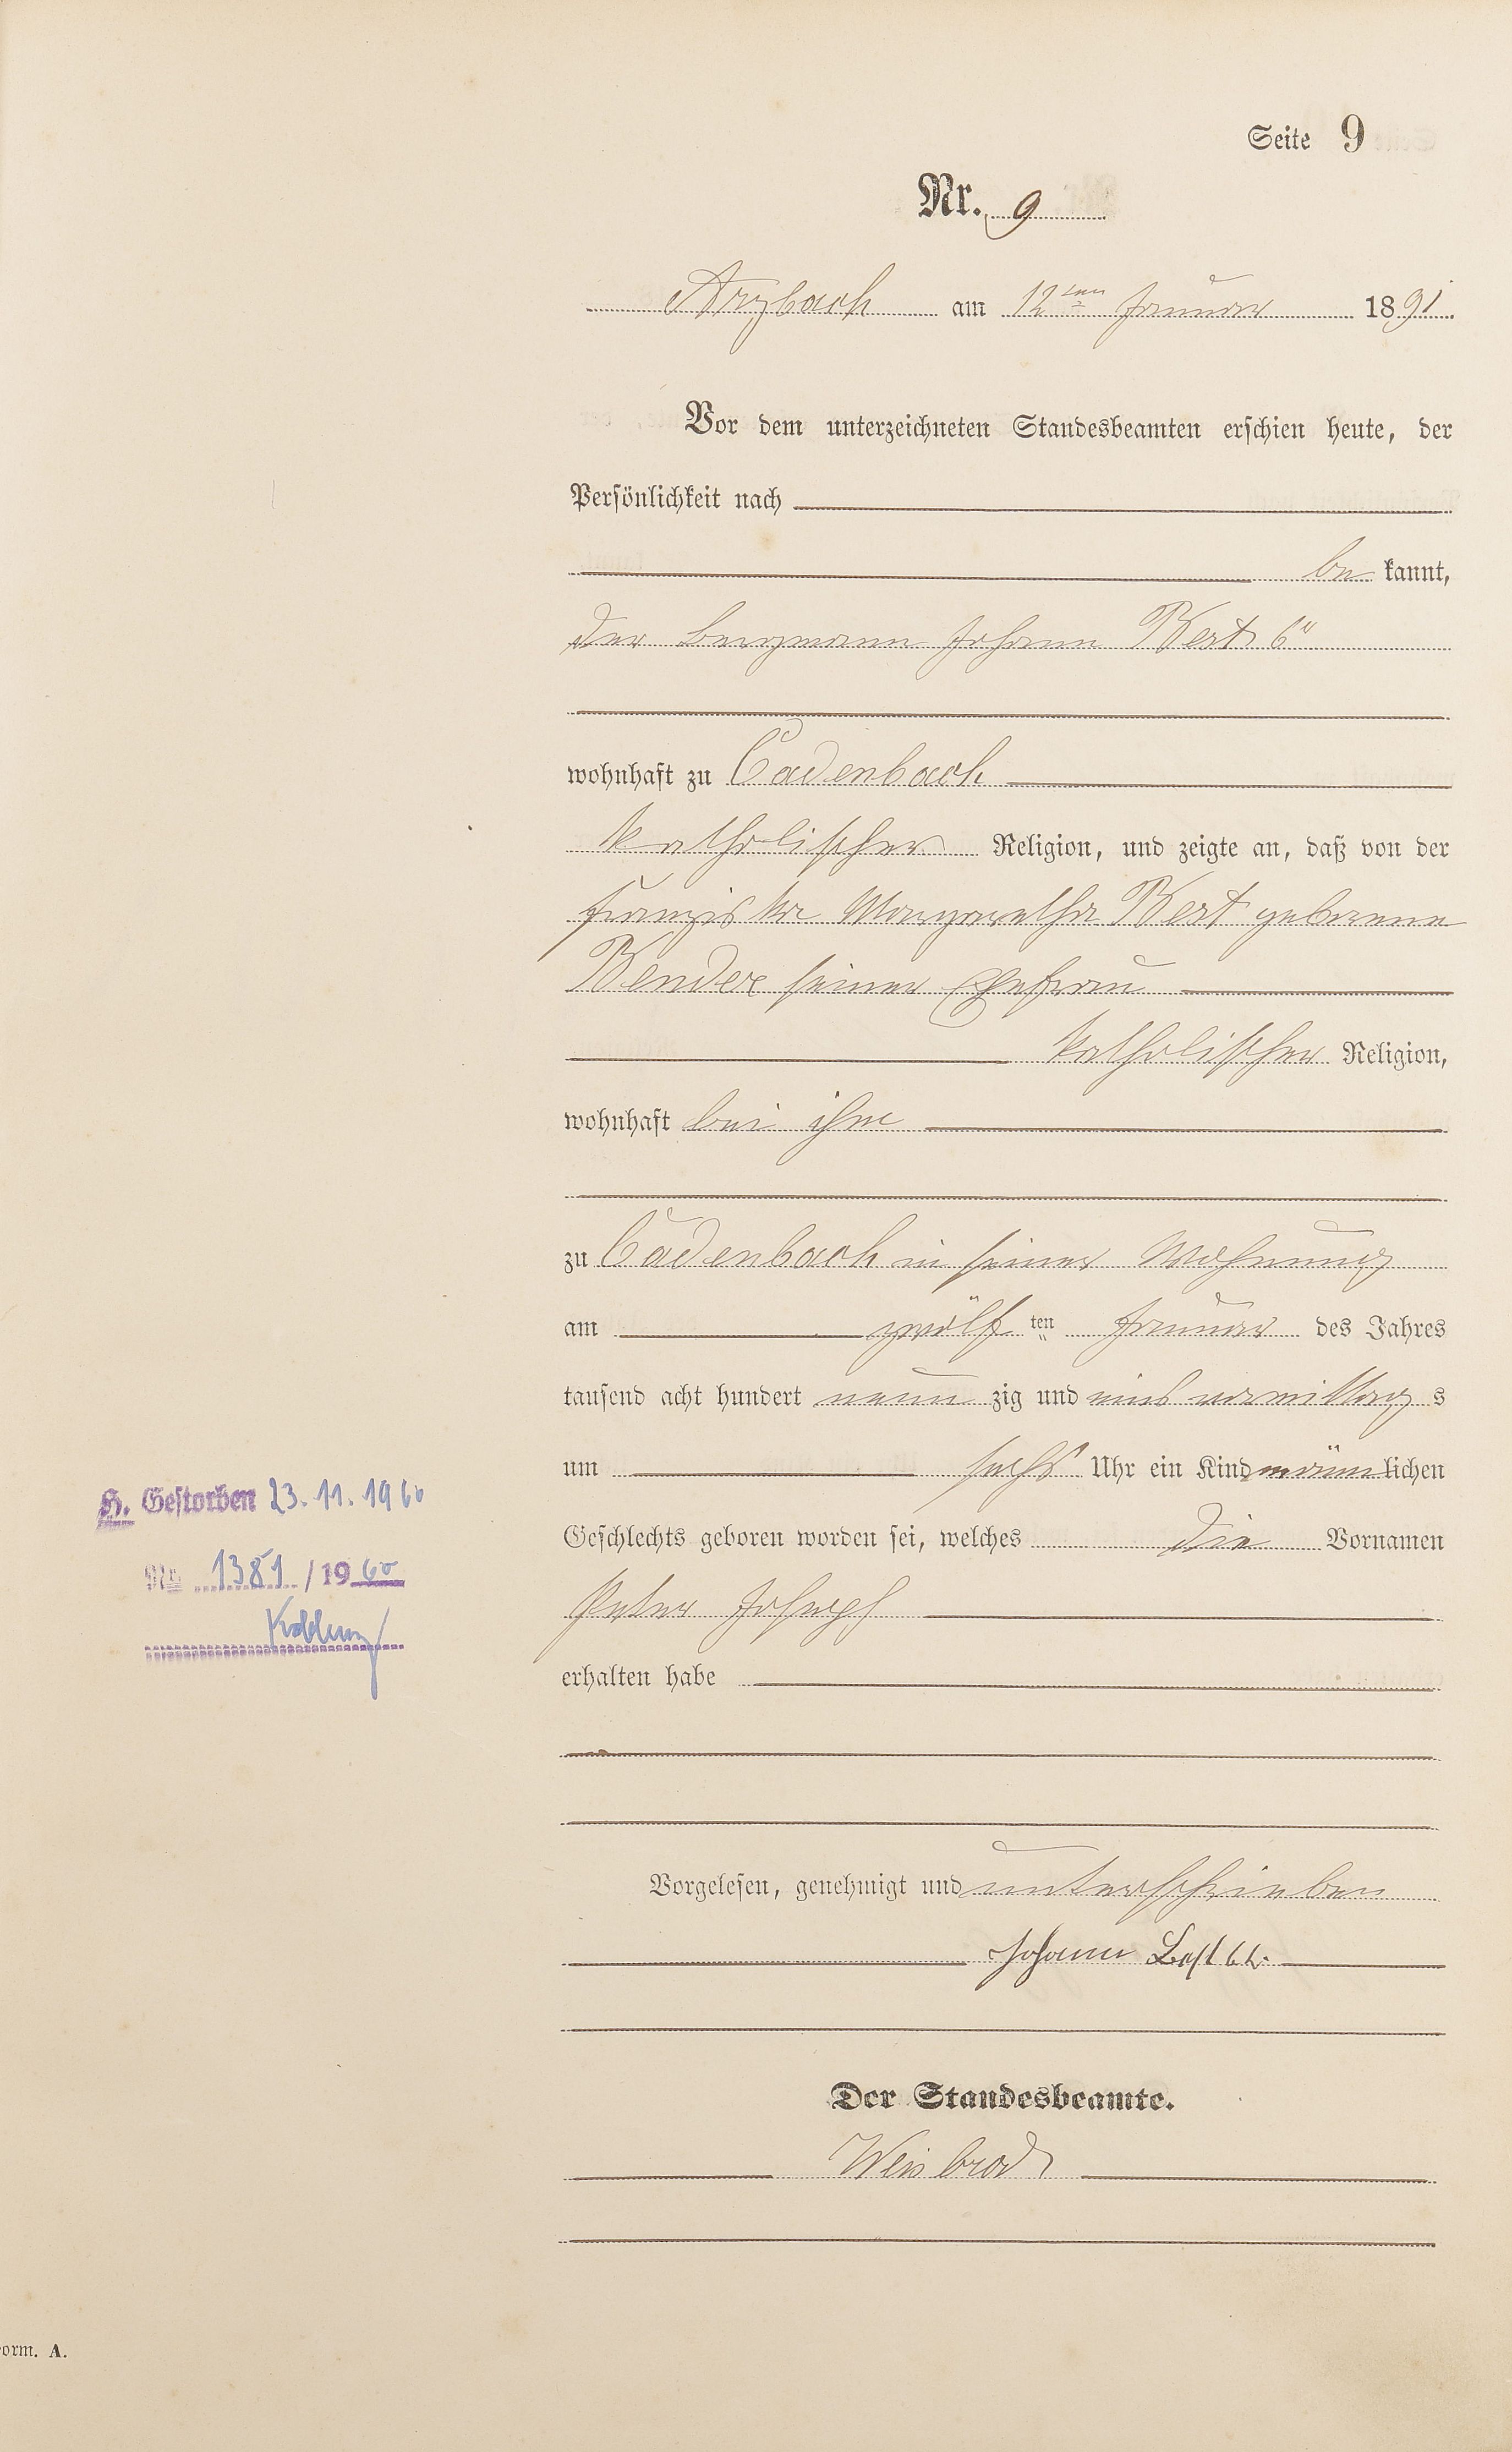 Seite 9
Nr. 9
Arzbach am 12ten Januar 1891.
Vor dem unterzeichneten Standesbeamten erschien heute, der
Persönlichkeit nach
be kannt,
der Bergmann Johann Best 6r
wohnhaft zu Cadenbach
katholischer Religion, und zeigte an, daß von der
Franziska Margaretha Best geborene
Bender seiner Ehefrau
katholischer Religion,
wohnhaft bei ihm
zu Cadenbach in seiner Wohnung
am zwölf ten Januar des Jahres
tausend acht hundert neun zig und eins vormittag s
um sechs Uhr ein Kind männlichen
H. Gestorben 23.11.1960
Geschlechts geboren worden sei, welches die Vornamen
Nr. 1381/1960
Peter Joseph
Koblenz
erhalten habe
Vorgelesen, genehmigt und unterschrieben
Johann Best 6t.
Der Standesbeamte.
Weisbrod
orm. A.